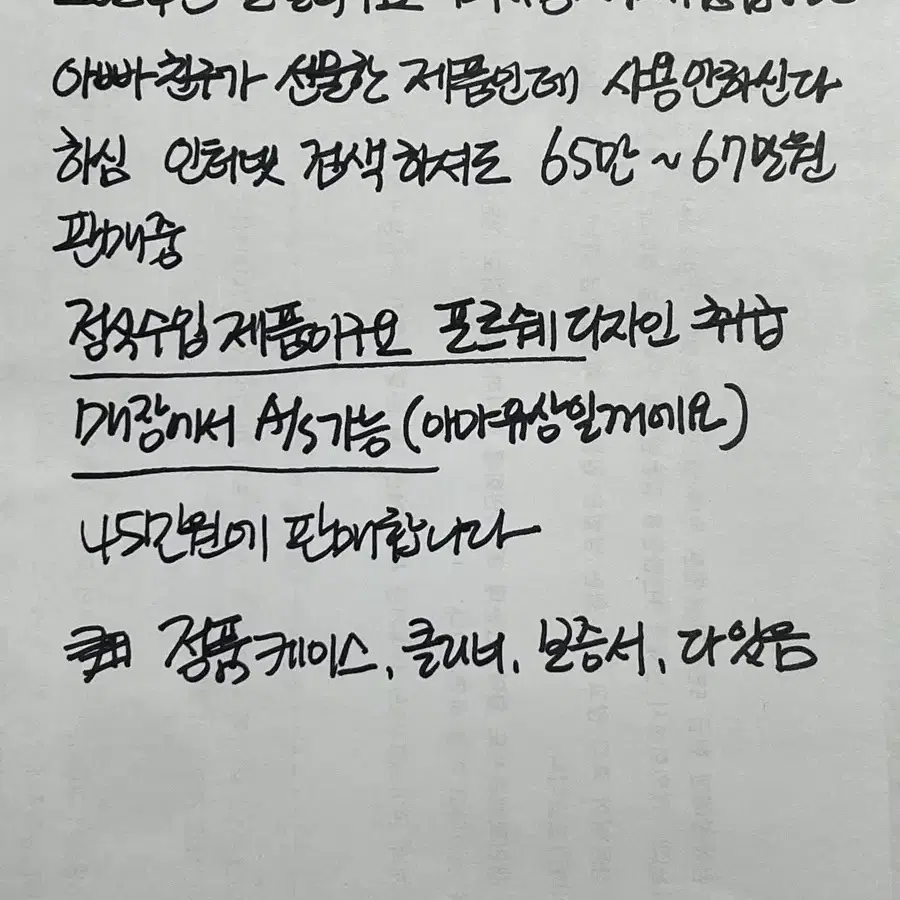 아빠친구가 선물한 제품인데 사용안하신다
하심 인터넷 검색하셔도 65만~67만원
판매중
정식수입제품이구요 포르쉐디자인 취급
매장에서 A/S가능(아마유상일꺼에요)
45만원에 판매합니다
정품케이스, 클리너, 보증서, 다있음